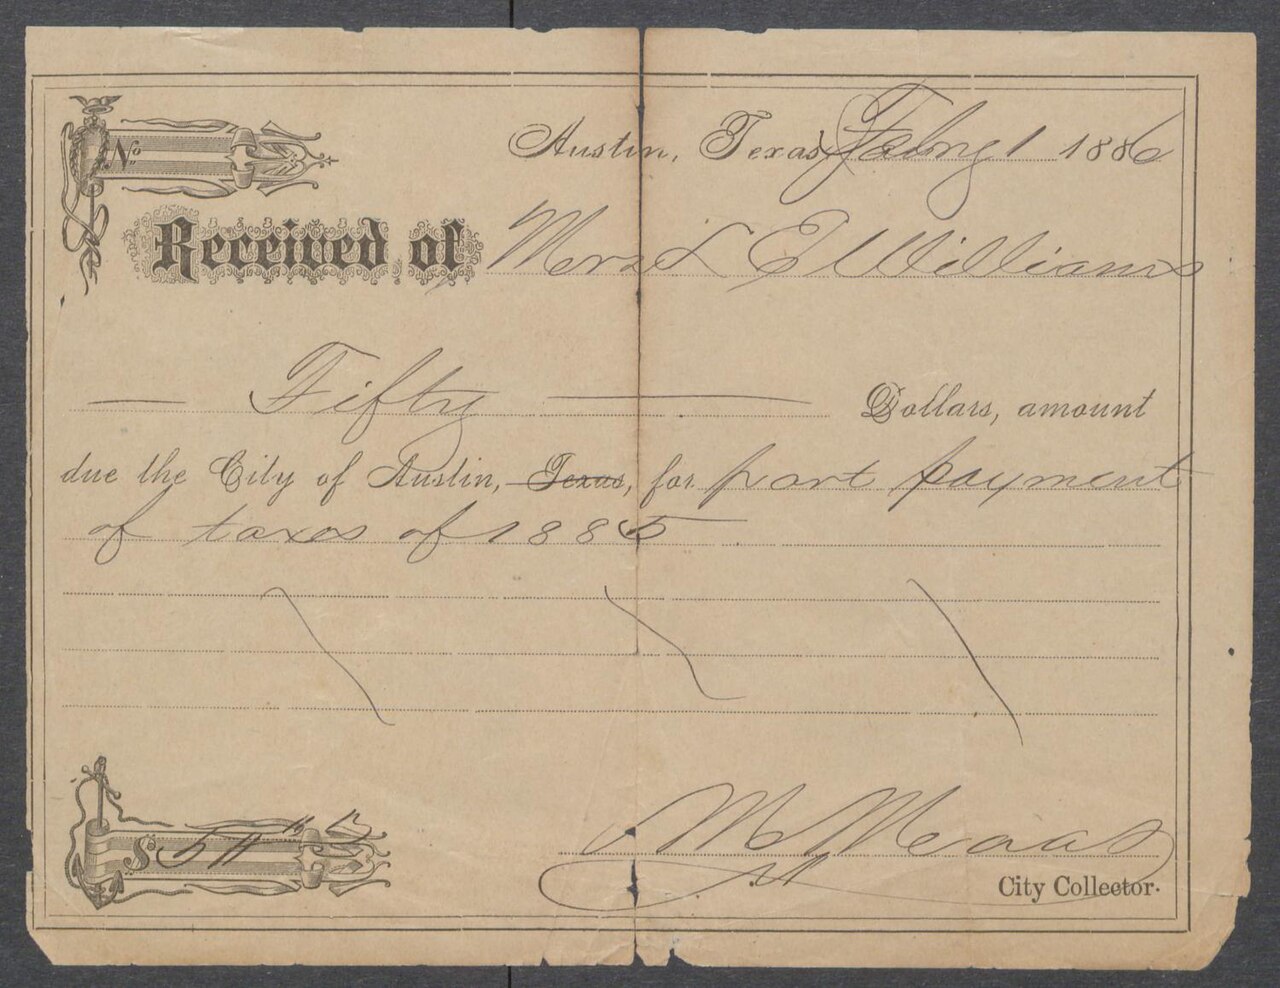 No.
Austin, Texas, Febry 1 1886
Received of Mrs L E Williams
— Fifty — Dollars, amount
due the City of Austin, Texas, for part payment
of taxes of 1885
$ 50
M Maas
City Collector.